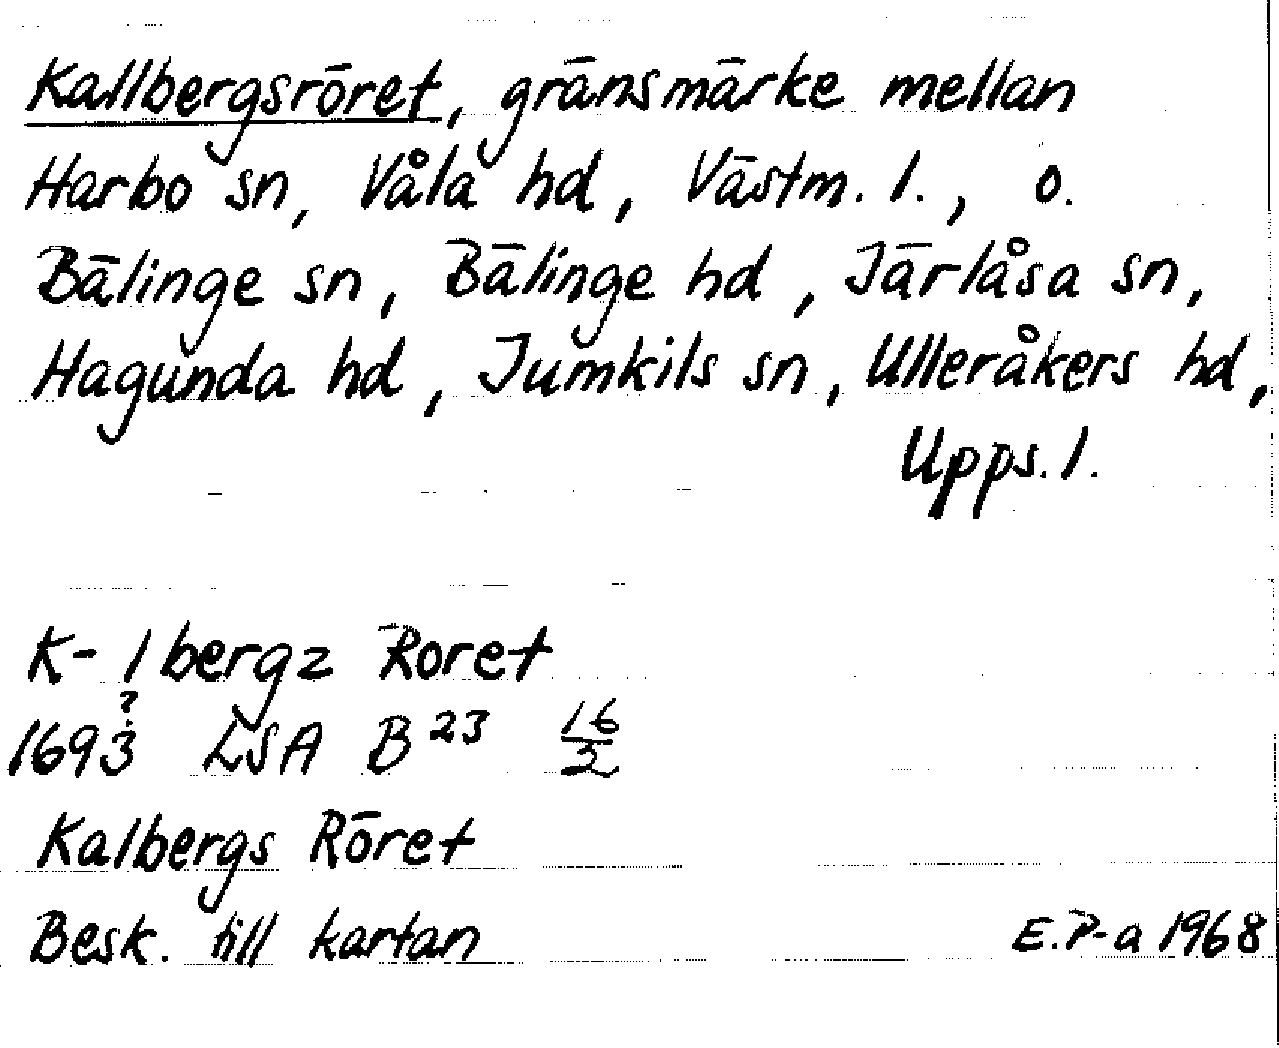 Kallbergsröret, gränsmärke mellan
Harbo sn, Våla hd, Västm. l., o.
Bälinge sn, Bälinge hd, Järlåsa sn,
Hagunda hd, Jumkils sn, Ulleråkers hd,
Upps. l.
K- l bergz Roret
?
1693 LSA B 23 16/2
Kalbergs Röret
Besk. till kartan E.P-a 1968